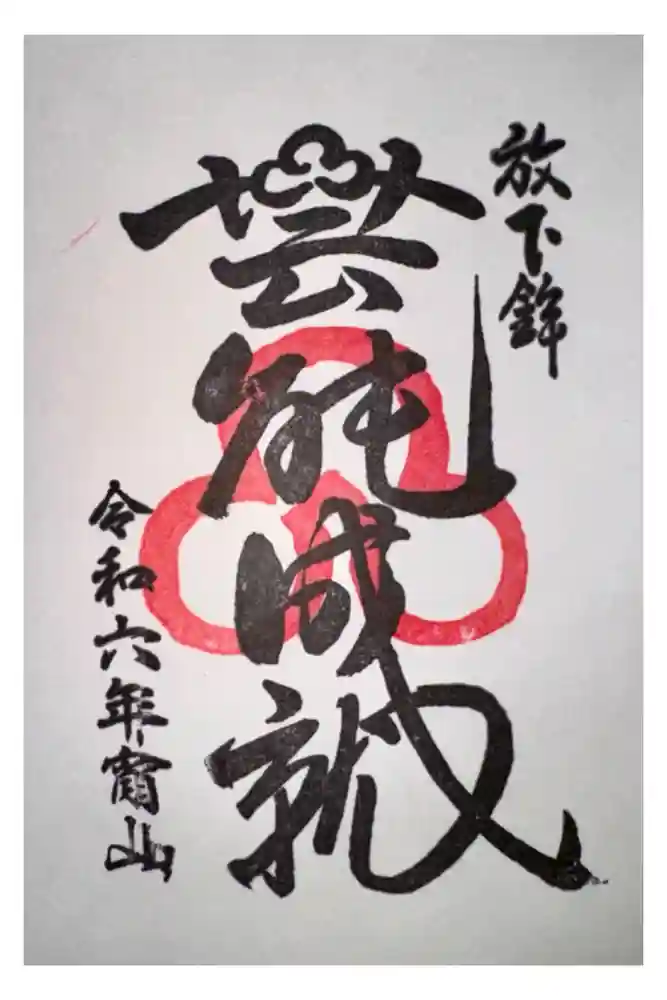 放下鉾
芸能成就
令和六年宵山